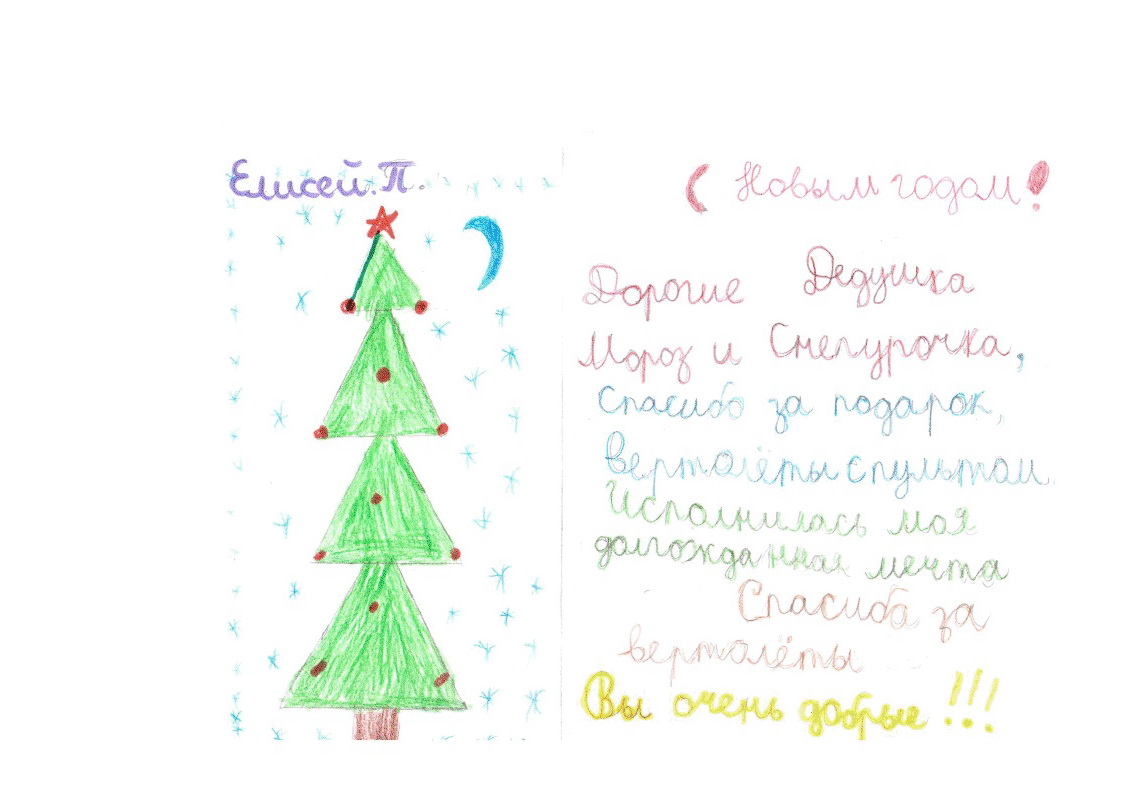 Елисей.П.
С Новым годом!
Дорогие Дедушка
Мороз и Снегурочка,
Спасибо за подарок,
вертолёты спультом.
Исполнилась моя
долгожданная мечта
Спасиба за
вертолёты
Вы очень добрые !!!